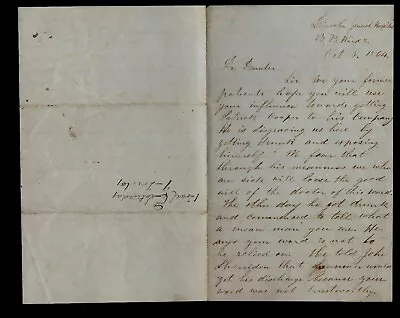 Lincoln Hospital
Oct 5, 1864
Sir we your former
patients hope you will use
your influence towards getting
Patrick Cooper to his Company
He is disgracing us here by
getting drunk and exposing
himself. We fear that
through his meanness we who
are sick will loose the good
will of the doctor of this ward.
The other day he got drunk
and commenced to tell what
a mean man you are. He
says your word is not to
be relied on. He told John
Sheridan that
his discharge because your
word was not trustworthy